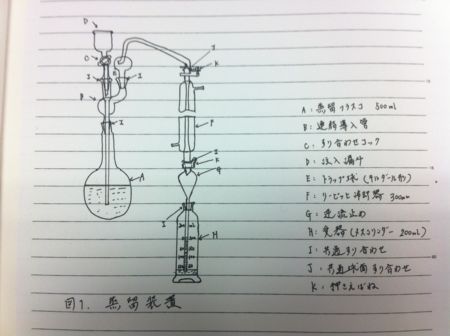 D
C
J
K
E
I
I
B
I
F
A
I
K
G
I
H
A: 蒸留フラスコ 500ml
B: 連結導入管
C: すり合わせコック
D: 注入漏斗
E: トラップ球(ケルダール形)
F: リービッヒ冷却器 300mm
G: 逆流止め
H: 受器(メスシリンダー 200ml)
I: 共通すり合わせ
J: 共通球面すり合わせ
K: 押さえばね
図1. 蒸留装置